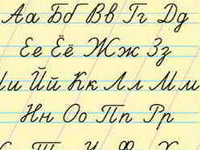 Аа Бб Вв Гг Дд
Ее Ёё Жж Зз
и Йй Кк Лл Мм
Нн Оо Пп Рр